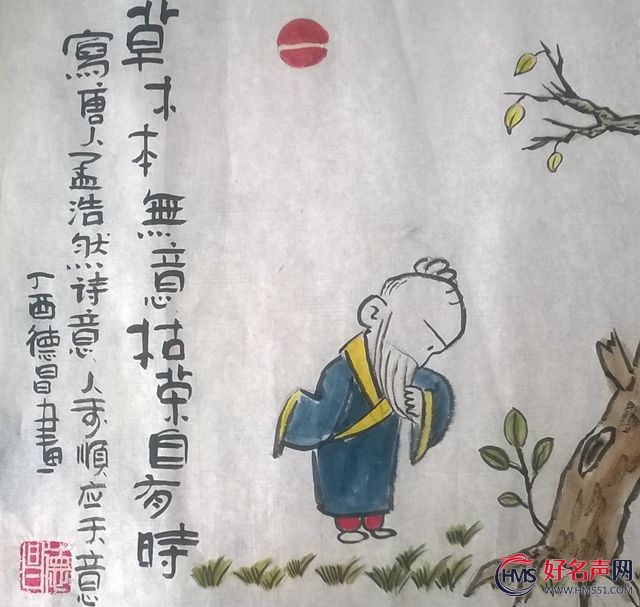 草木本無意枯荣自有時
寫唐人孟浩然诗意人順应天意
丁酉德昌畫
德昌
HMS 好名声网
WWW.HMS51.COM